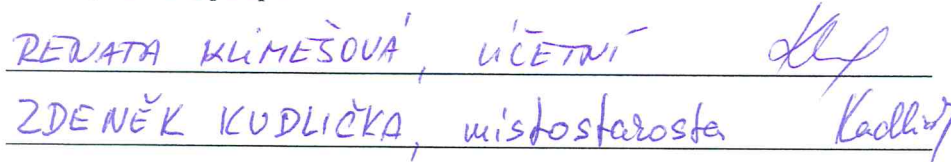 RENATA KLIMEŠOVÁ, ÚČETNÍ
ZDENĚK KUDLIČKA, místostarosta